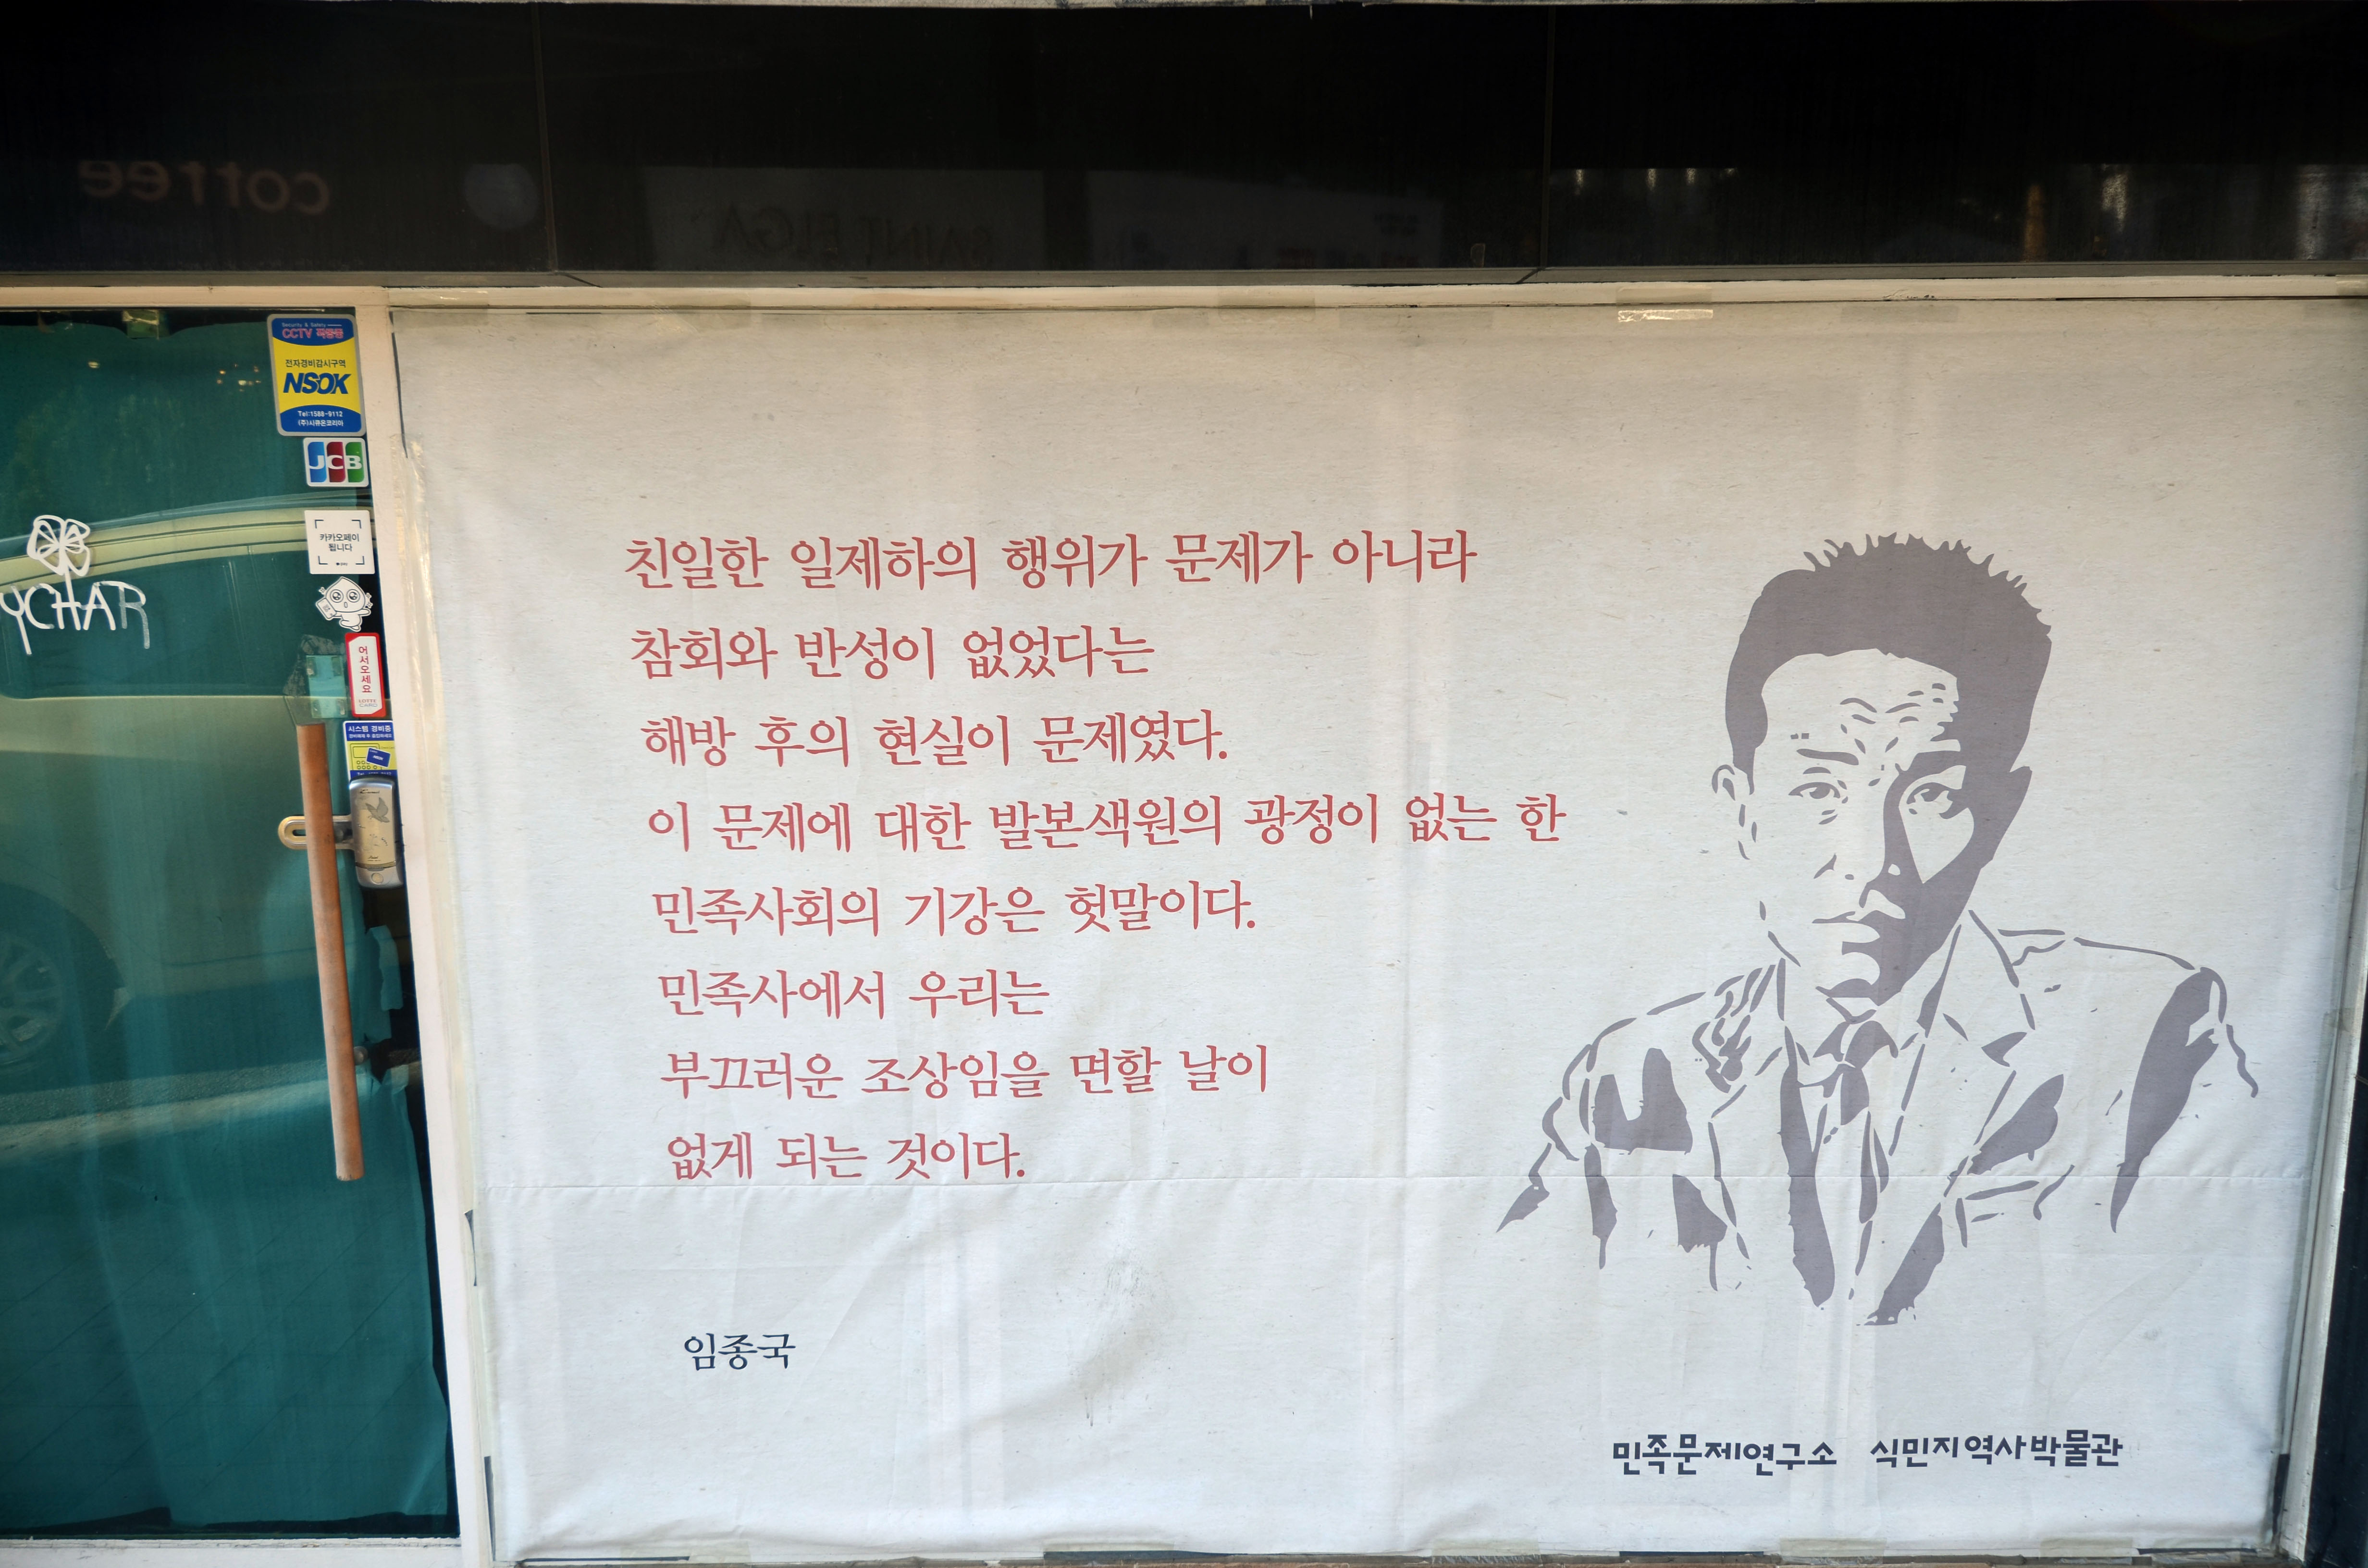 coffee
SAINT ELGA
Security & Safety
CCTV 작동중
전자경비감시구역
NSOK
Tel:1588-9112
(주)시큐온코리아
JCB
카카오페이
됩니다
YCHAR
어서오세요
LOTTE
시스템 경비중
친일한 일제하의 행위가 문제가 아니라
참회와 반성이 없었다는
해방 후의 현실이 문제였다.
이 문제에 대한 발본색원의 광정이 없는 한
민족사회의 기강은 헛말이다.
민족사에서 우리는
부끄러운 조상임을 면할 날이
없게 되는 것이다.
임종국
민족문제연구소 식민지역사박물관